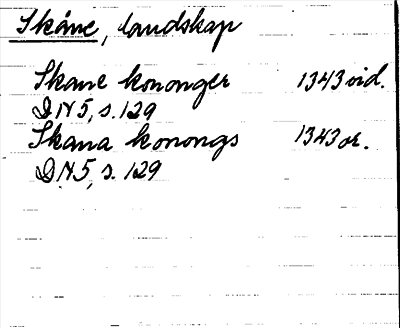 Skåne, landskap
Skane kononger 1343 vid.
DN 5, s. 129
Skana konongs 1343 or.
DN 5, s. 129